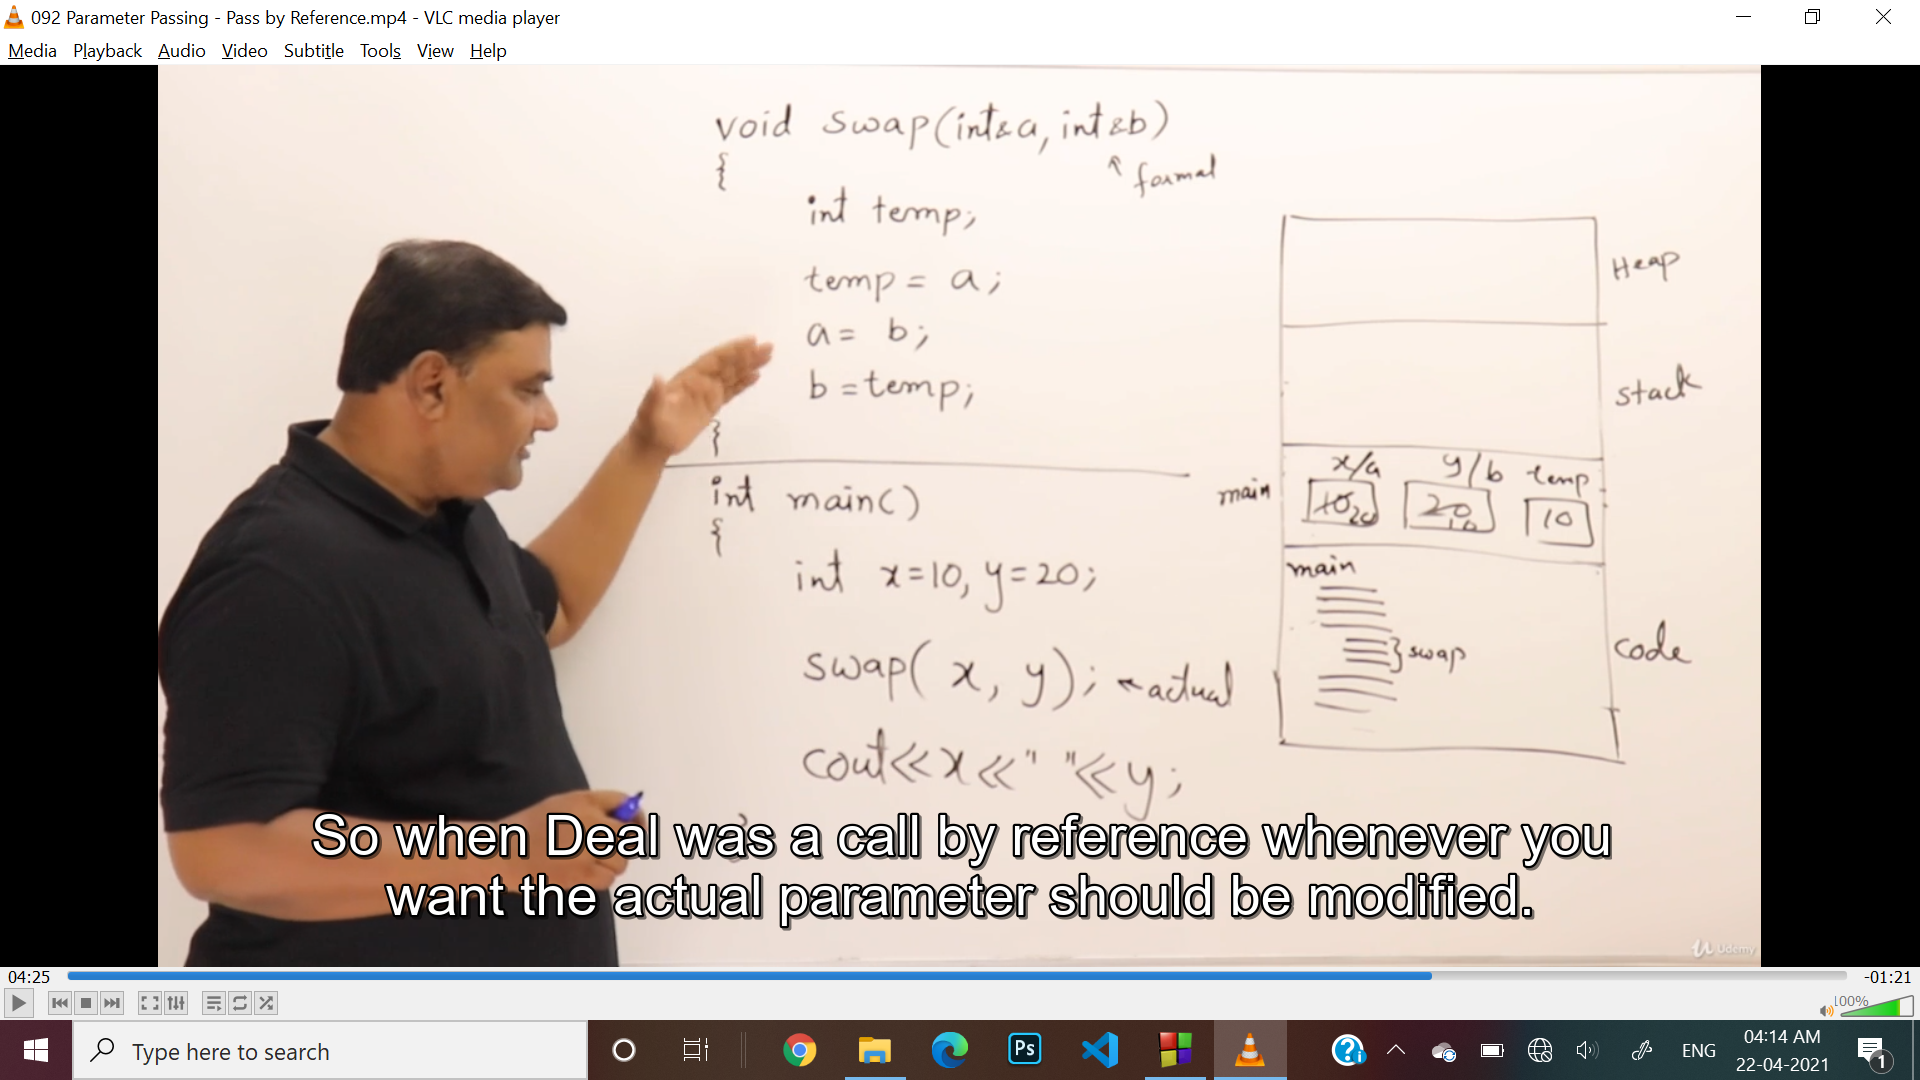 092 Parameter Passing - Pass by Reference.mp4 - VLC media player
Media Playback Audio Video Subtitle Tools View Help
void swap(int&a, int&b)
formal
{
int temp;
temp = a;
a = b;
b = temp;
}
int main()
{
int x=10, y=20;
swap( x, y);
actual
cout<<x<<" "<<y;
Heap
stack
main
x/a y/b temp
10 20 20 10 10
main
swap
code
So when Deal was a call by reference whenever you
want the actual parameter should be modified.
Udemy
04:25
-01:21
100%
Type here to search
Ps
ENG
04:14 AM
22-04-2021
1